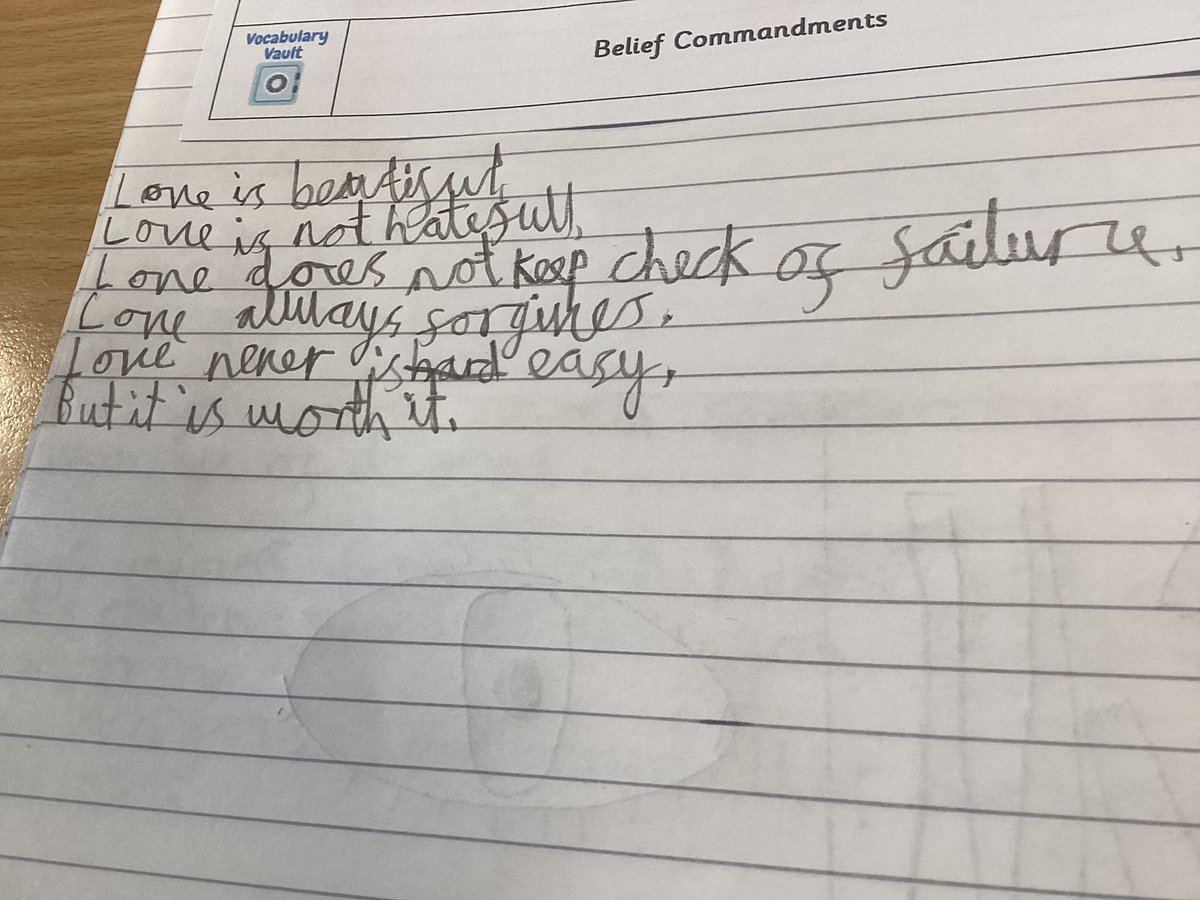 Vocabulary
Vault
Belief Commandments
Love is beautiful,
Love is not hatefull,
Love does not keep check of failure,
Love allways forgives.
Love never is hard easy,
But it is worth it.